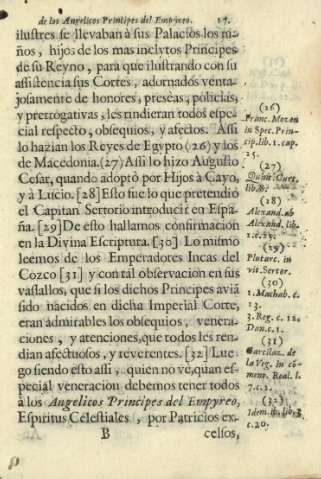 de los Angelicos Principes del Empyreo. 17.
ilustres se llevaban à sus Palacios los ni-
ños, hijos de los mas inclytos Principes
de su Reyno, para que ilustrando con su
assistencia sus Cortes, adornados venta-
josamente de honores, preseas, policias,
y prerrogativas, les rindieran todos espe-
cial respecto, obsequios, y afectos. Assi
lo hazian los Reyes de Egypto (26) y los
de Macedonia. (27) Assi lo hizo Augusto
Cesar, quando adoptò por Hijos à Gayo,
y à Lucio. [28] Esto fue lo que pretendiò
el Capitan Sertorio introducir en Espa-
ña. [29] De esto hallamos confirmacion
en la Divina Escriptura. [30] Lo mismo
leemos de los Emperadores Incas del
Cozco [31] y con tal observacion en sus
vassallos, que si los dichos Principes aviã
sido nacidos en dicha Imperial Corte,
eran admirables los obsequios, venera-
ciones, y atenciones, que todos les ren-
dian afectuosos, y reverentes. [32] Lue-
go siendo esto assi, quien no ve, quan es-
pecial veneracion debemos tener todos
à los Angelicos Principes del Empyreo,
Espiritus Celestiales, por Patricios ex-
B celsos,
(26)
Franc. Mozon
in Spec. Prin-
cip. lib. 1. cap.
25.
(27)
Quint. Curt.
lib. 8.
(28)
Alexand. ab
Alexand. lib.
(29)
Plutarc. in
vit. Sertor.
(30)
1. Machab. c.
13.
3. Reg. c. 12.
Dan. c. 1.
(31)
Garcilas. de
la Veg. in cõ-
ment. Real. l.
7. c. 2.
(32)
Idem. ib. lib.
c. 20.